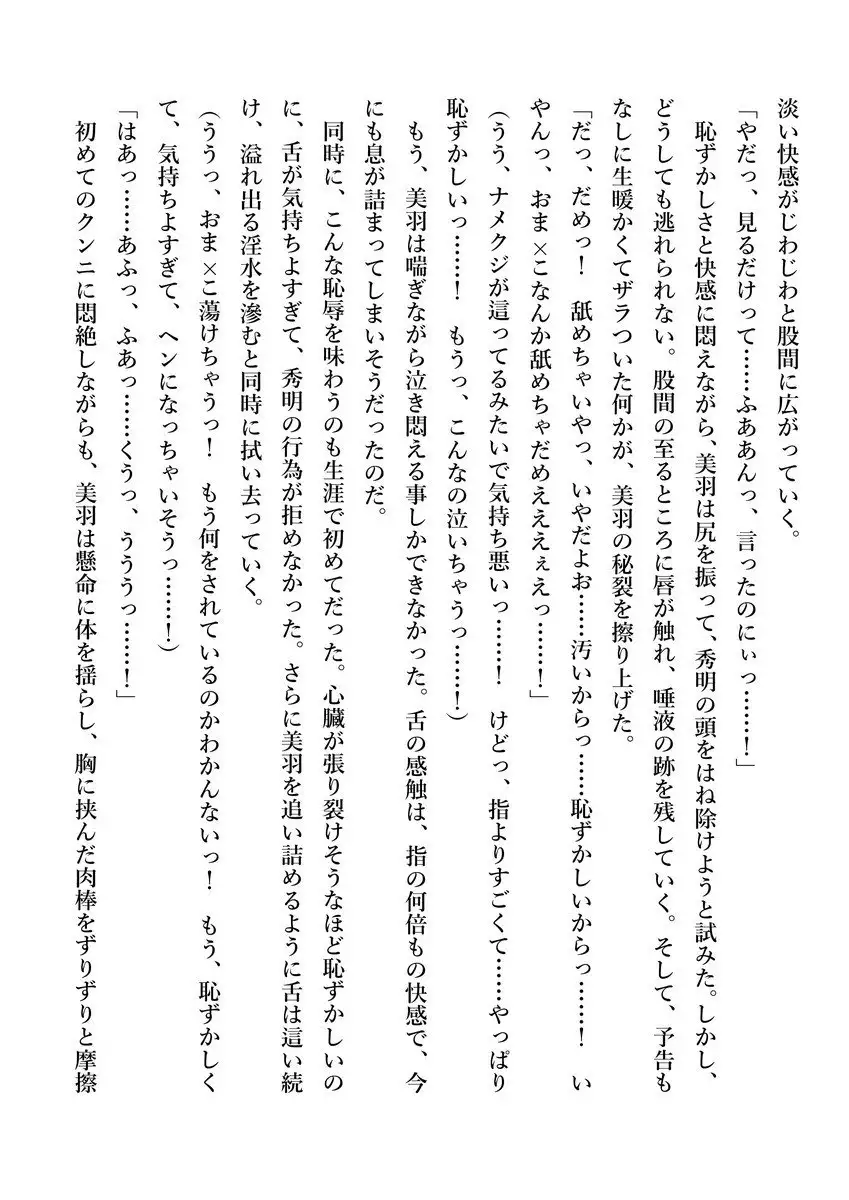 淡い快感がじわじわと股間に広がっていく。
「やだっ、見るだけって……ふああんっ、言ったのにぃっ……！」
恥ずかしさと快感に悶えながら、美羽は尻を振って、秀明の頭をはね除けようと試みた。しかし、
どうしても逃れられない。股間の至るところに唇が触れ、唾液の跡を残していく。そして、予告も
なしに生暖かくてザラついた何かが、美羽の秘裂を擦り上げた。
「だっ、だめっ！　舐めちゃいやっ、いやだよお……汚いからっ……恥ずかしいからっ……！　い
やんっ、おま×こなんか舐めちゃだめえええぇえっ……！」
（うう、ナメクジが這ってるみたいで気持ち悪いっ……！　けどっ、指よりすごくて……やっぱり
恥ずかしいっ……！　もうっ、こんなの泣いちゃうっ……！）
もう、美羽は喘ぎながら泣き悶える事しかできなかった。舌の感触は、指の何倍もの快感で、今
にも息が詰まってしまいそうだったのだ。
同時に、こんな恥辱を味わうのも生涯で初めてだった。心臓が張り裂けそうなほど恥ずかしいの
に、舌が気持ちよすぎて、秀明の行為が拒めなかった。さらに美羽を追い詰めるように舌は這い続
け、溢れ出る淫水を滲むと同時に拭い去っていく。
（ううっ、おま×こ蕩けちゃうっ！　もう何をされているのかわかんないっ！　もう、恥ずかしく
て、気持ちよすぎて、ヘンになっちゃいそうっ……！）
「はあっ……あふっ、ふあっ……くうっ、うううっ……！」
初めてのクンニに悶絶しながらも、美羽は懸命に体を揺らし、胸に挟んだ肉棒をずりずりと摩擦